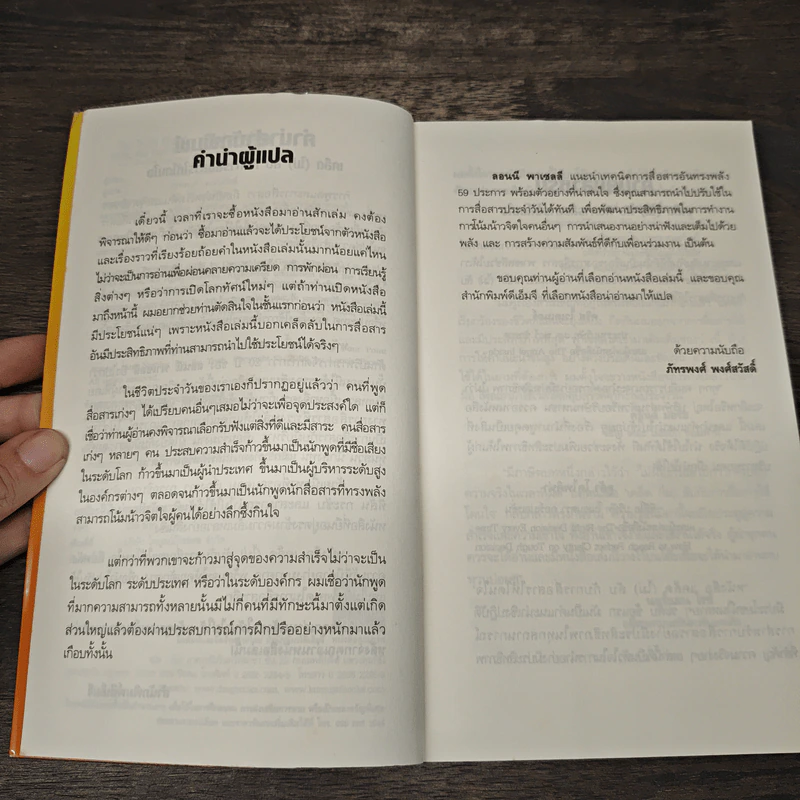 คำนำผู้แปล
เดี๋ยวนี้ เวลาที่เราจะซื้อหนังสือมาอ่านสักเล่ม คงต้อง
พิจารณาให้ดีๆ ก่อนว่า ซื้อมาอ่านแล้วจะได้ประโยชน์จากตัวหนังสือ
และเรื่องราวที่เรียงร้อยถ้อยคำในหนังสือเล่มนั้นมากน้อยแค่ไหน
ไม่ว่าจะเป็นการอ่านเพื่อผ่อนคลายความเครียด การพักผ่อน การเรียนรู้
สิ่งต่างๆ หรือว่าการเปิดโลกทัศน์ใหม่ๆ แต่ถ้าท่านเปิดหนังสือ
มาถึงหน้านี้ ผมอยากช่วยท่านตัดสินใจในชั้นแรกก่อนว่า หนังสือเล่มนี้
มีประโยชน์แน่ๆ เพราะหนังสือเล่มนี้บอกเคล็ดลับในการสื่อสาร
อันมีประสิทธิภาพที่ท่านสามารถนำไปใช้ประโยชน์ได้จริงๆ
ในชีวิตประจำวันของเราเองก็ปรากฏอยู่แล้วว่า คนที่พูด
สื่อสารเก่งๆ ได้เปรียบคนอื่นๆเสมอไม่ว่าจะเพื่อจุดประสงค์ใด แต่ก็
เชื่อว่าท่านผู้อ่านคงพิจารณาเลือกรับฟังแต่สิ่งที่ดีและมีสาระ คนสื่อสาร
เก่งๆ หลายๆ คน ประสบความสำเร็จก้าวขึ้นมาเป็นนักพูดที่มีชื่อเสียง
ในระดับโลก ก้าวขึ้นมาเป็นผู้นำประเทศ ขึ้นมาเป็นผู้บริหารระดับสูง
ในองค์กรต่างๆ ตลอดจนก้าวขึ้นมาเป็นนักพูดนักสื่อสารที่ทรงพลัง
สามารถโน้มน้าวจิตใจผู้คนได้อย่างลึกซึ้งกินใจ
แต่กว่าที่พวกเขาจะก้าวมาสู่จุดของความสำเร็จไม่ว่าจะเป็น
ในระดับโลก ระดับประเทศ หรือว่าในระดับองค์กร ผมเชื่อว่านักพูด
ที่มากความสามารถทั้งหลายนั้นมีไม่กี่คนที่มีทักษะนี้มาตั้งแต่เกิด
ส่วนใหญ่แล้วต้องผ่านประสบการณ์การฝึกปรืออย่างหนักมาแล้ว
เกือบทั้งนั้น
ลอนนี พาเซลลี แนะนำเทคนิคการสื่อสารอันทรงพลัง
59 ประการ พร้อมตัวอย่างที่น่าสนใจ ซึ่งคุณสามารถนำไปปรับใช้ใน
การสื่อสารประจำวันได้ทันที เพื่อพัฒนาประสิทธิภาพในการทำงาน
การโน้มน้าวจิตใจคนอื่นๆ การนำเสนองานอย่างน่าฟังและเต็มไปด้วย
พลัง และ การสร้างความสัมพันธ์ที่ดีกับเพื่อนร่วมงาน เป็นต้น
ขอบคุณท่านผู้อ่านที่เลือกอ่านหนังสือเล่มนี้ และขอบคุณ
สำนักพิมพ์ดีเอ็มจี ที่เลือกหนังสือน่าอ่านมาให้แปล
ด้วยความนับถือ
ภัทรพงศ์ พงศ์สวัสดิ์